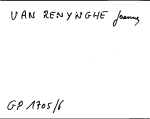 VAN RENYNGHE Jeanne
GP 1705/6